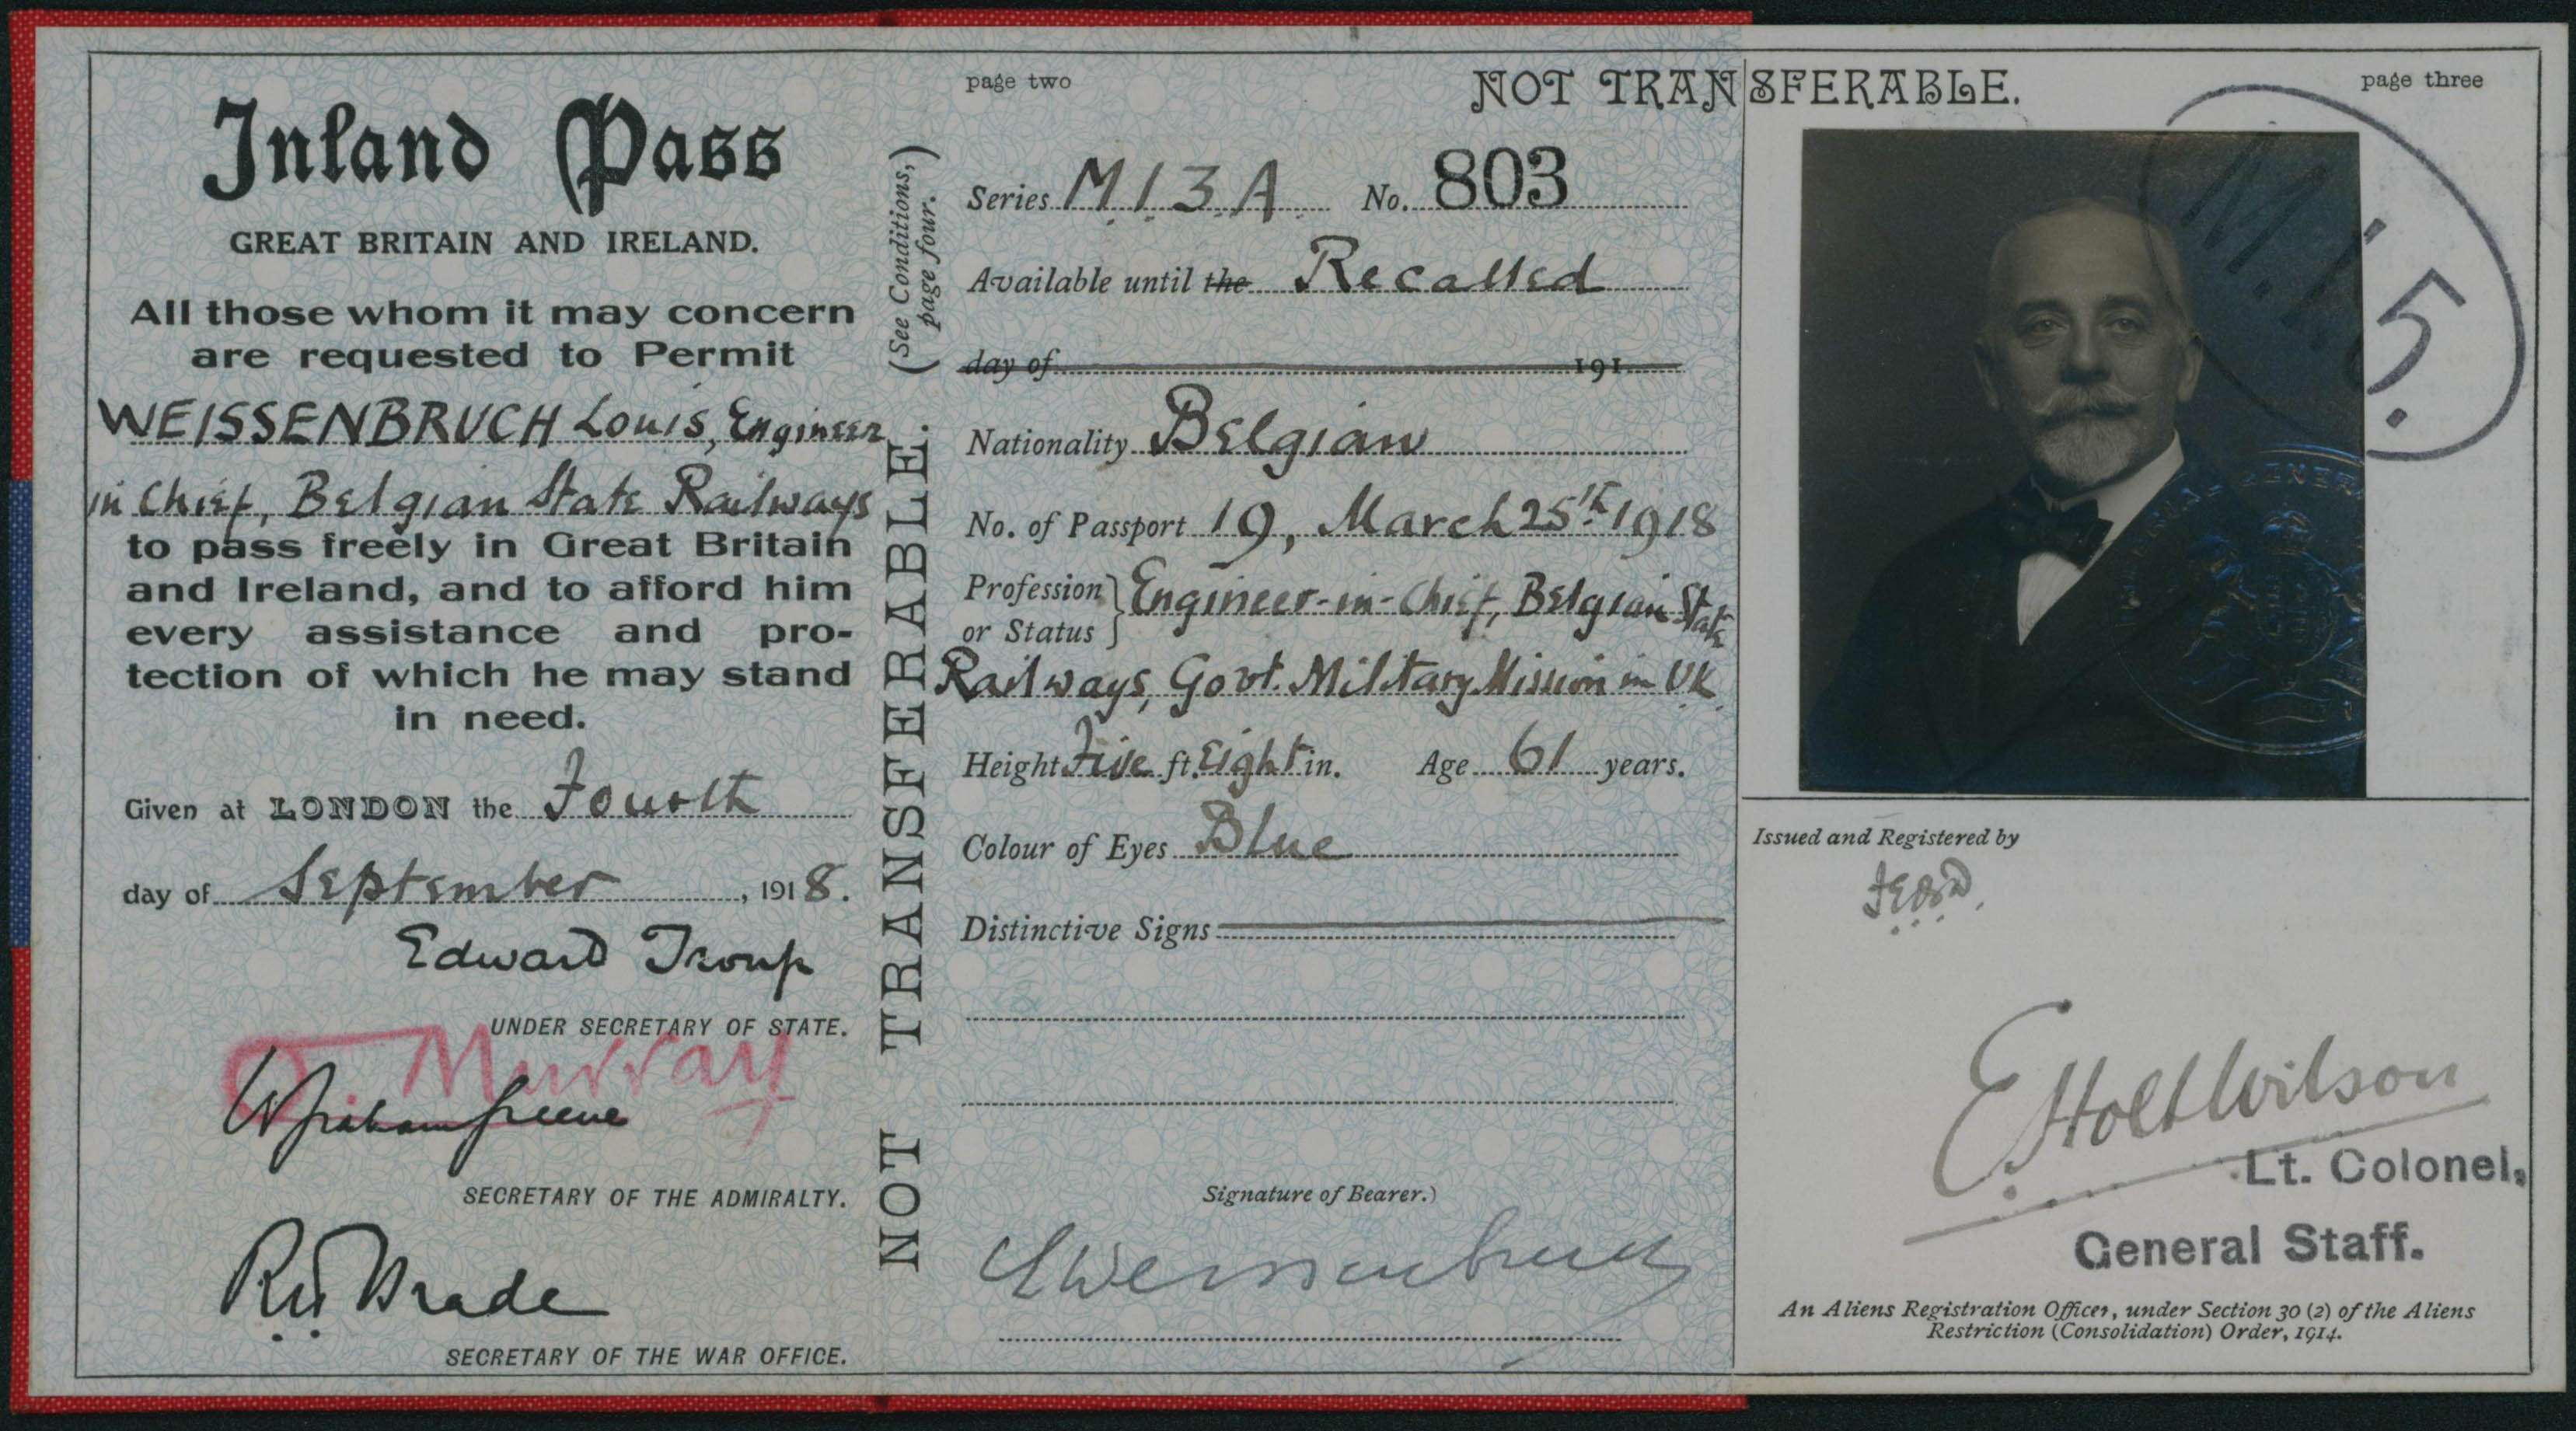 Inland Pass
GREAT BRITAIN AND IRELAND.
All those whom it may concern
are requested to Permit
WEISSENBRUCH Louis, Engineer
in Chief, Belgian State Railways
to pass freely in Great Britain
and Ireland, and to afford him
every assistance and pro-
tection of which he may stand
in need.
Given at LONDON the Fourth
day of September, 1918.
Edward Troup
UNDER SECRETARY OF STATE.
O Murray
W Graham Greene
SECRETARY OF THE ADMIRALTY.
R H Brade
SECRETARY OF THE WAR OFFICE.
(See Conditions,
page four.)
NOT TRANSFERABLE.
page two
NOT TRANSFERABLE.
Series M.I.3.A. No. 803
Available until the Recalled
day of 191
Nationality Belgian
No. of Passport 19, March 25th 1918
Profession
or Status } Engineer-in-Chief, Belgian State
Railways, Govt. Military Mission in UK.
Height Five ft. Eight in. Age 61 years.
Colour of Eyes Blue
Distinctive Signs
Signature of Bearer.)
LWeissenbruch
page three
M.I.5.
Issued and Registered by
E Holt Wilson
Lt. Colonel,
General Staff.
An Aliens Registration Officer, under Section 30 (2) of the Aliens
Restriction (Consolidation) Order, 1914.